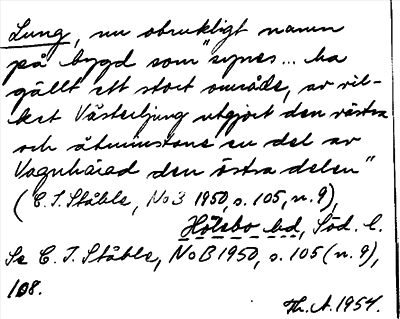 Lung, nu obrukligt namn
på bygd som "synes... ha
gällt ett stort område, av vil-
ket Västerljung utgjort den västra
och åtminstone en del av
Vagnhärad den östra delen"
(C. I. Ståhle, NoB 1950, s. 105, n. 9),
Hölebo hd, Söd. l.
Se C. I. Ståhle, NoB 1950, s. 105 (n. 9),
108.
Th. A. 1954.